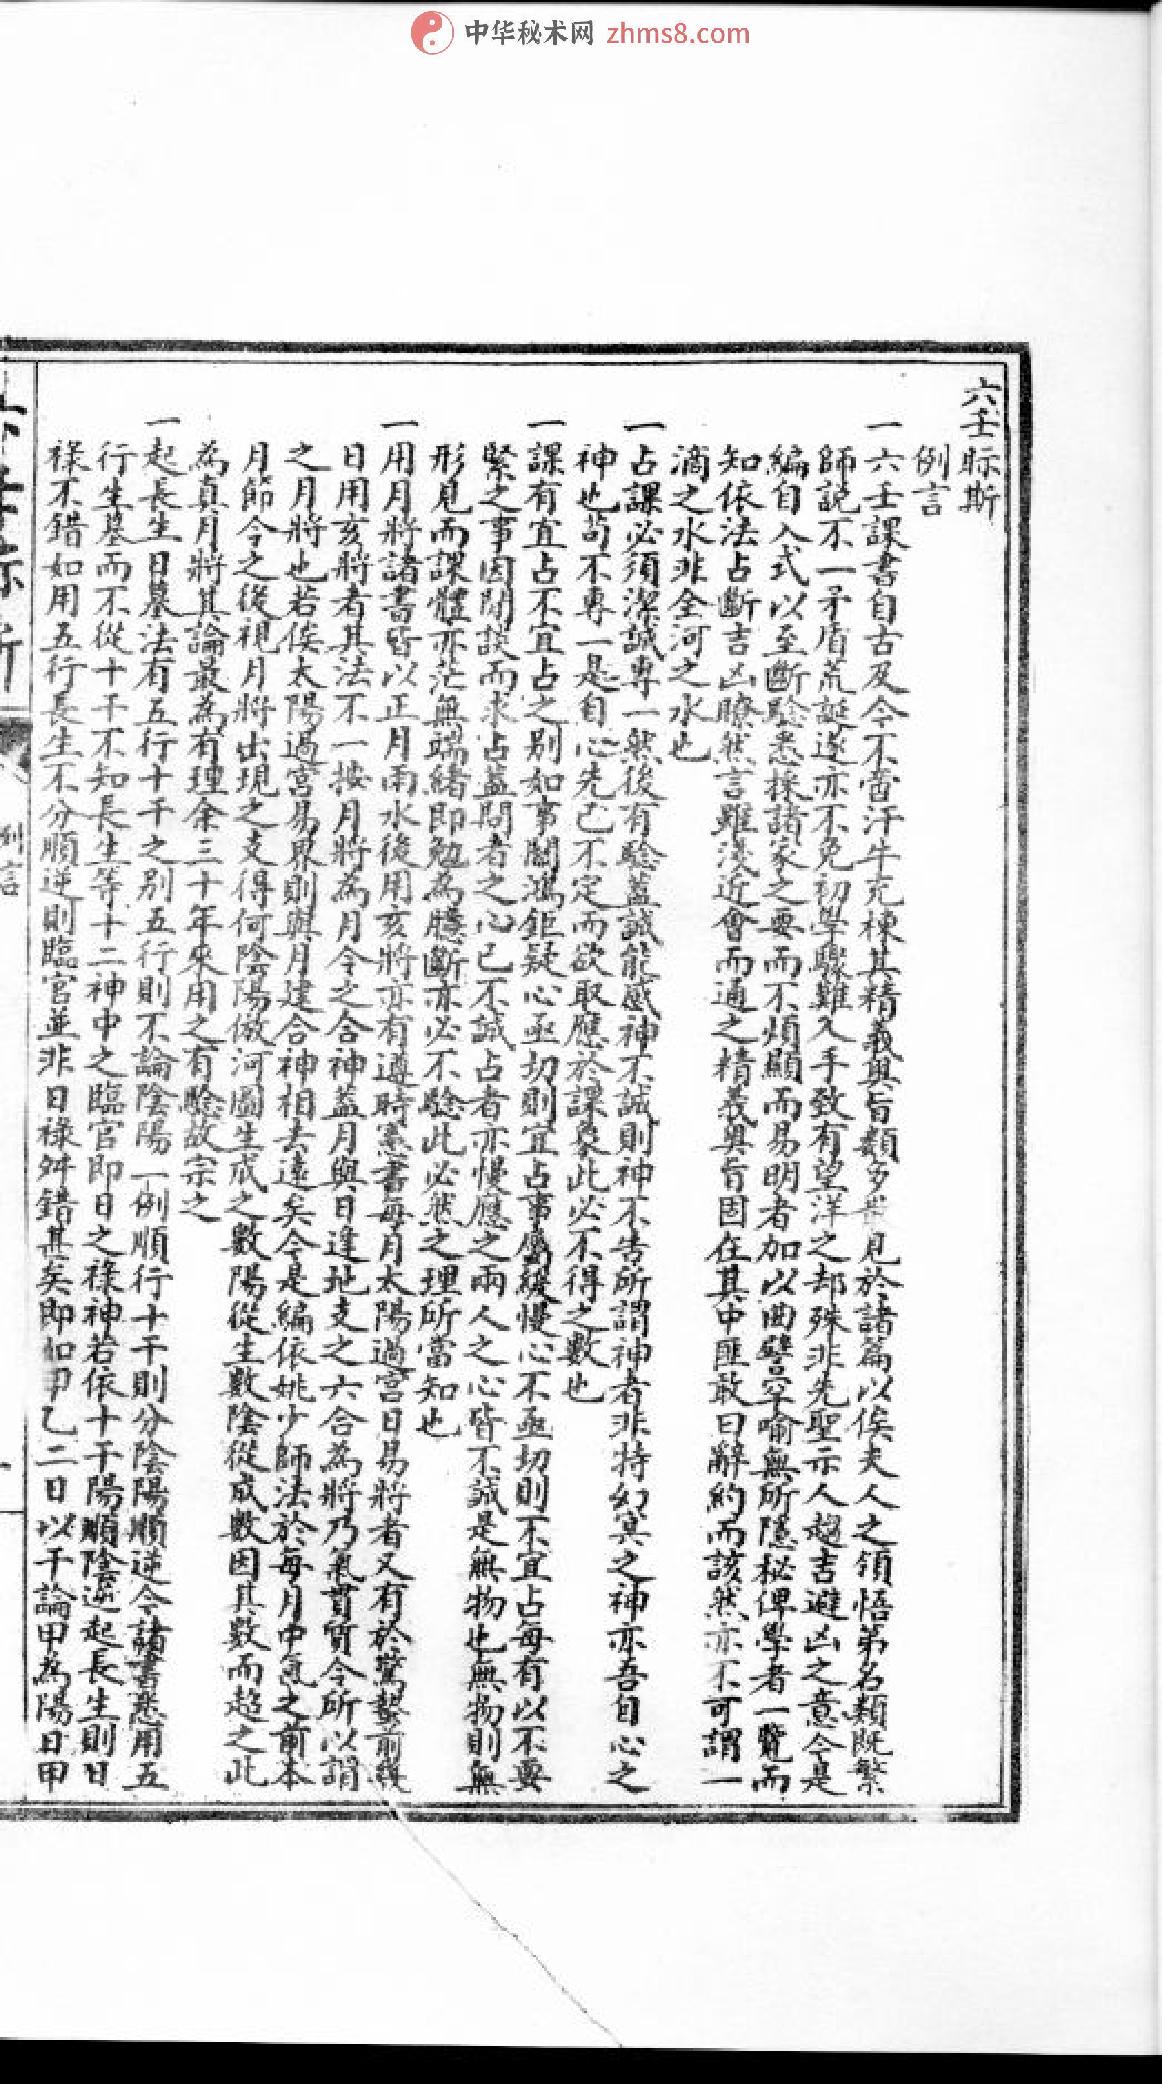 中华秘术网 zhms8.com
六壬眎斯
例言
一六壬課書自古及今不啻汗牛充棟其精義奧旨類多散見於諸篇以俟夫人之領悟第名類既繁
師說不一矛盾荒誕遂亦不免初學驟難入手致有望洋之却殊非先聖示人趨吉避凶之意今是
編自入式以至斷驗悉採諸家之要而不煩顯而易明者加以曲譬罕喻無所隱秘俾學者一覽而
知依法占斷吉凶瞭然言雖淺近會而通之精義奧旨因在其中匪敢曰辭約而該然亦不可謂一
滴之水非全河之水也
一占課必須潔誠專一然後有驗蓋誠能感神不誠則神不告所謂神者非特幻冥之神亦吾自心之
神也苟不專一是自心先已不定而欲取應於課象此必不得之數也
一課有宜占不宜占之別如事關鴻鉅疑心亟切則宜占事屬緩慢心不亟切則不宜占每有以不要
緊之事因閒談而求占蓋問者之心已不誠占者亦慢應之兩人之心皆不誠是無物也無物則無
形見而課體亦茫無端緒即勉為臆斷亦必不驗此必然之理所當知也
一用月將諸書皆以正月雨水後用亥將亦有遵時憲書每月太陽過宮日易將者又有於驚蟄前後
日用亥將者其法不一按月將為月令之合神蓋月與日逢地支之六合為將乃氣貫質令所以謂
之月將也若俟太陽過宮易界則與月建合神相去遠矣今是編依姚少師法於每月中氣之前本
月節令之後視月將出現之支得何陰陽倣河圖生成之數陽從生數陰從成數因其數而超之此
為真月將其論最為有理余三十年來用之有驗故宗之
一起長生日墓法有五行十干之別五行則不論陰陽一例順行十干則分陰陽順逆今諸書悉用五
行生墓而不從十干不知長生等十二神中之臨官即日之祿神若依十干陽順陰逆起長生則日
祿不錯如用五行長生不分順逆則臨官並非日祿舛錯甚矣即如甲乙二日以干論甲為陽日甲
例言
一